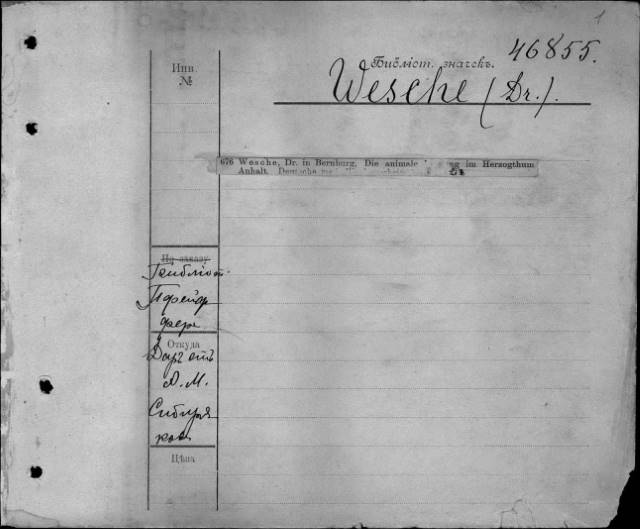 1
46855.
Инв.
№
Библіот. значекъ.
Wesche (Dr.).
676 Wesche, Dr. in Bernburg, Die animale im Herzogthum
Anhalt. Deutsche
На заказу
Откуда
Даръ отъ
А. М.
Сибиря
кова
Цѣна